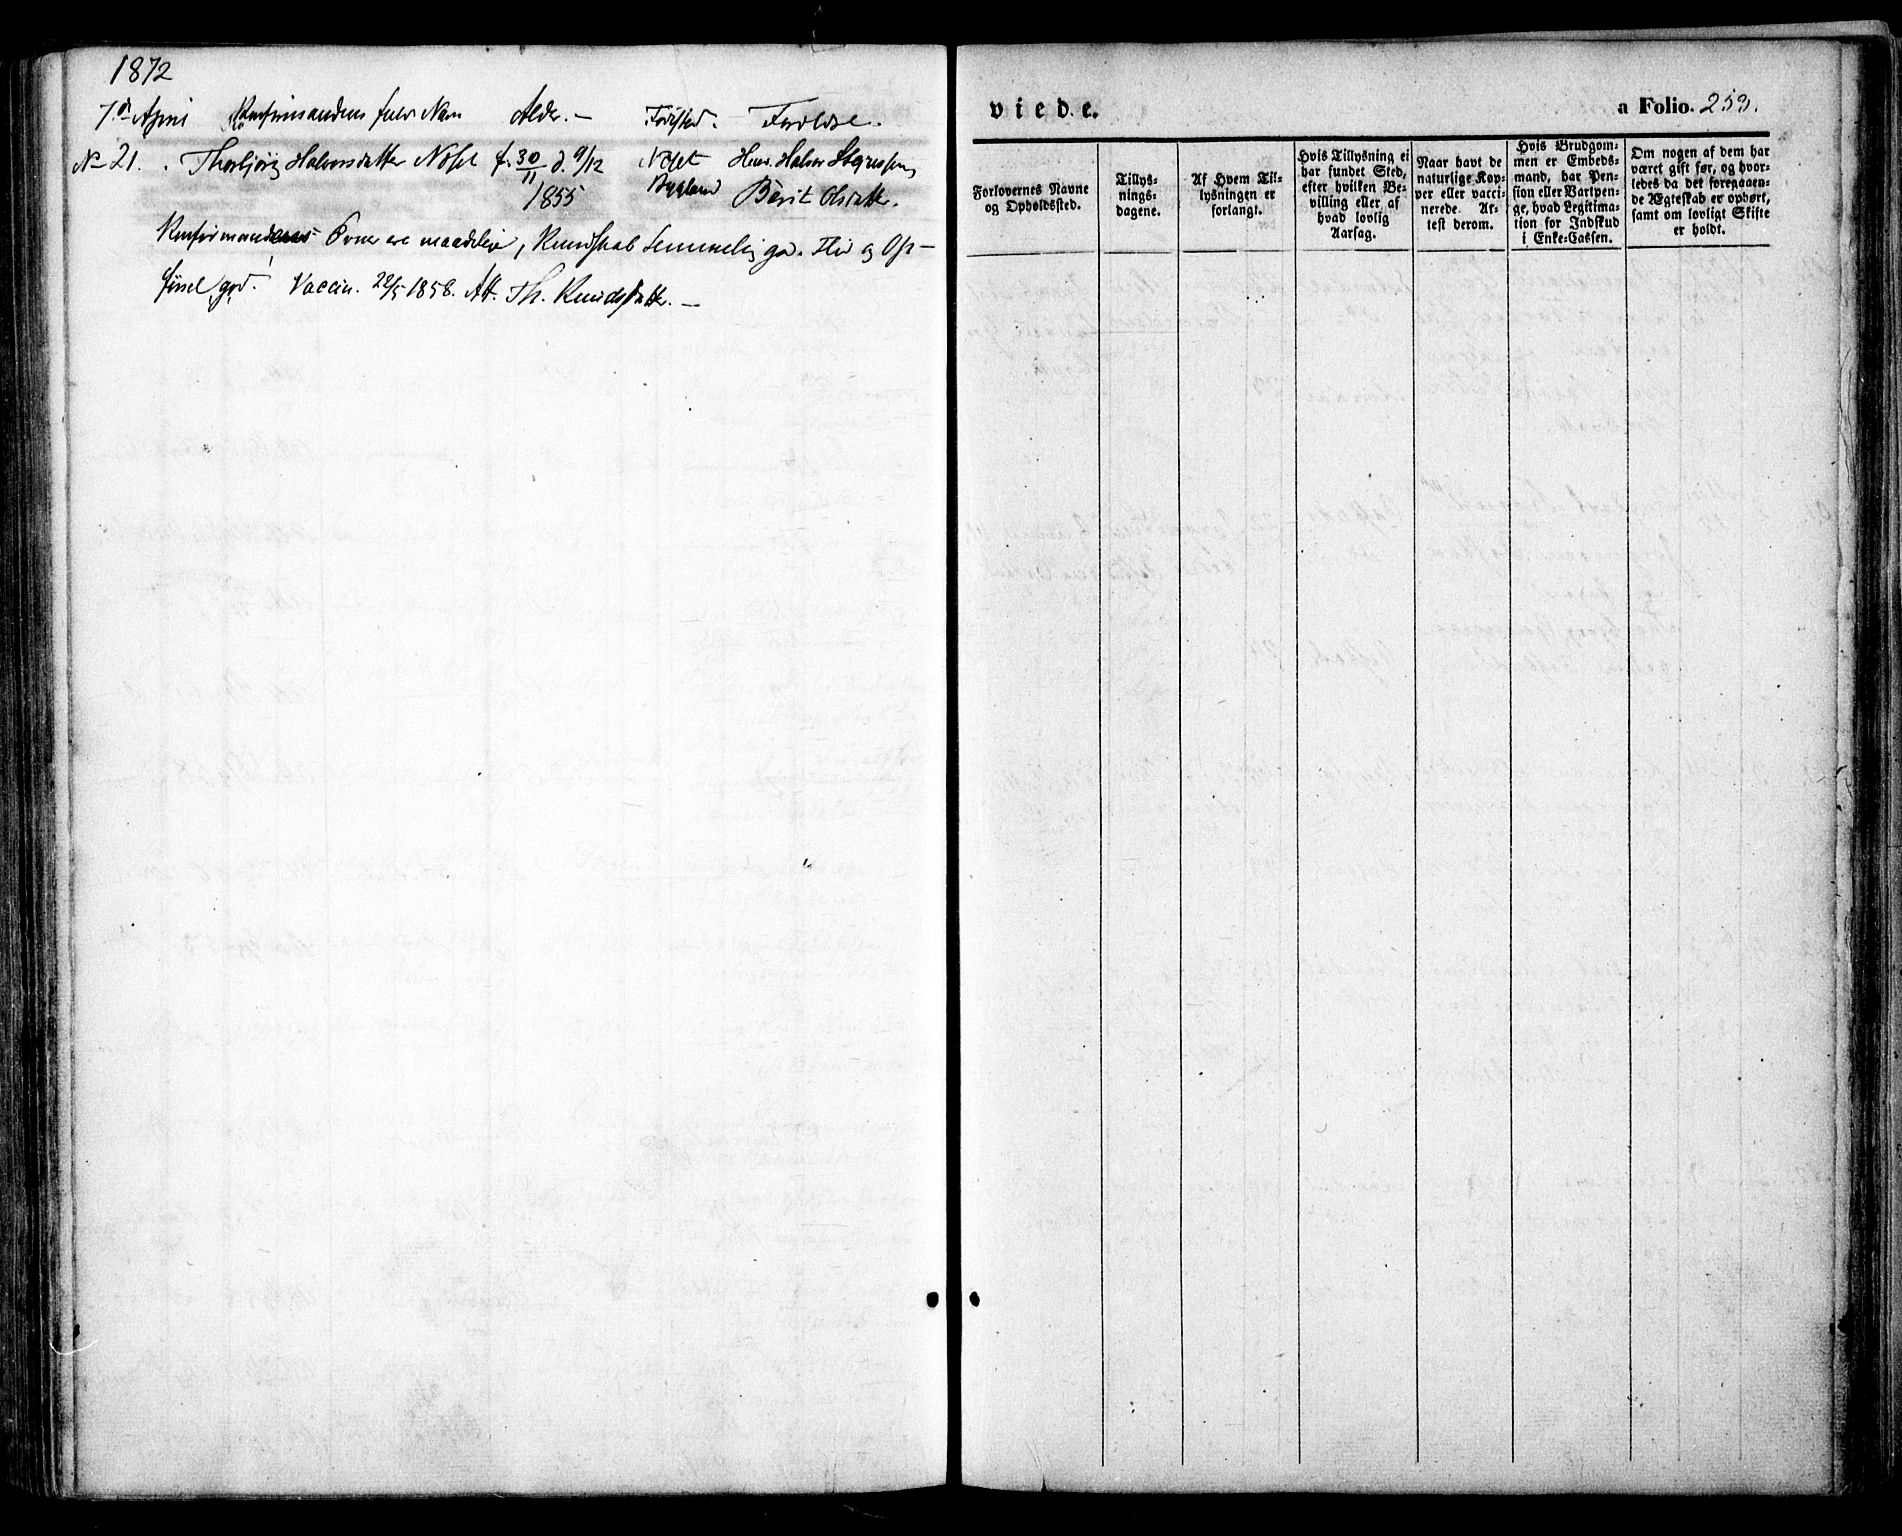 1872
7de April Konfirmandens fulde Navn Alder. — Fødested. Forældre.
No 21. Thorbjørg Halvorsdatter Nåset f. 30/11 d. 9/12 Nåset Huusm. Halvor
1855 Bygland Berit Olsdatter.
Konfirmandens Evner ere maadelige, Kundskab temmelig god. Flid og Op-
førsel god. Vaccin. 22/5 1858. Att. Th. Knudsdatter. —
viede.
a Folio. 253.
Forlovernes Navne og Opholdssted.
Tillysningsdagene.
Af Hvem Tillysningen er forlangt.
Hvis Tillysning ei har fundet Sted, efter hvilken Bevilling eller af hvad lovlig Aarsag.
Naar havt de naturlige Kopper eller vaccinerede. Attest derom.
Hvis Brudgommen er Embedsmand, har Pension eller Vartpenge, hvad Legitimation for Indskud i Enke-Cassen.
Om nogen af dem har været gift før, og hvorledes da det foregaaende Ægteskab er ophørt, samt om lovligt Skifte er holdt.